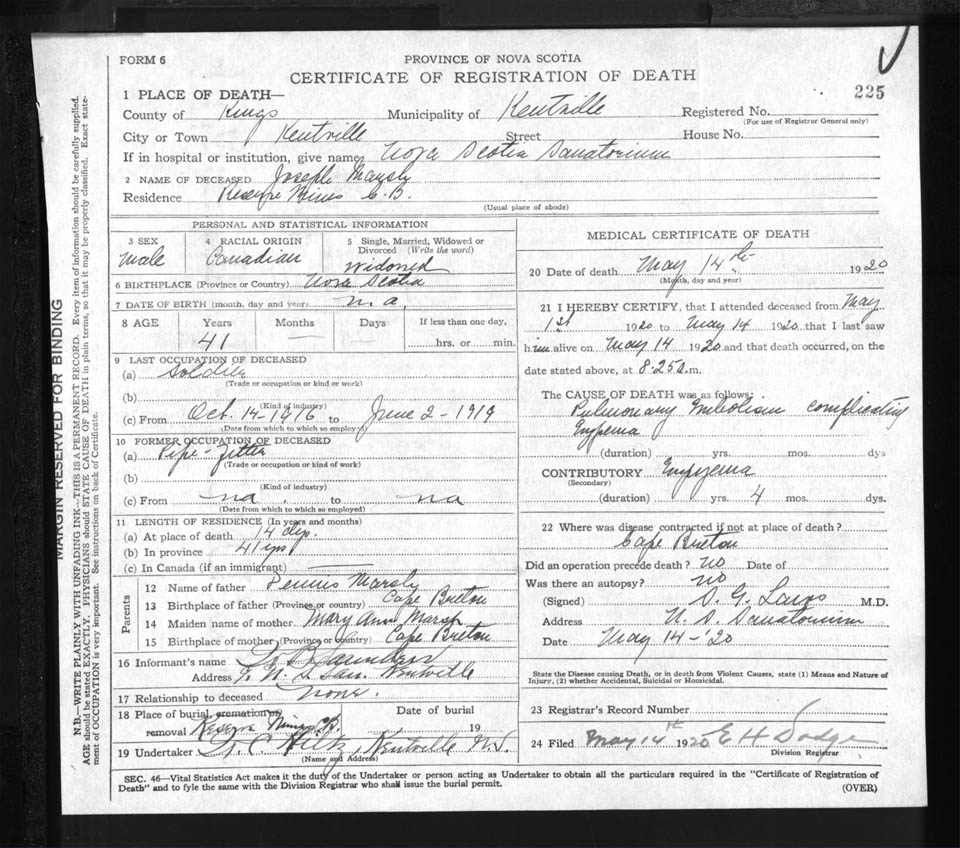 FORM 6
PROVINCE OF NOVA SCOTIA
CERTIFICATE OF REGISTRATION OF DEATH
225
1 PLACE OF DEATH—
County of Kings Municipality of Kentville Registered No.
(For use of Registrar General only)
City or Town Kentville Street House No.
If in hospital or institution, give name Nova Scotia Sanatorium
2 NAME OF DECEASED Joseph
Residence Reserve Mines C.B.
(Usual place of abode)
PERSONAL AND STATISTICAL INFORMATION
3 SEX
male
4 RACIAL ORIGIN
Canadian
5 Single, Married, Widowed or Divorced (Write the word)
widowed
6 BIRTHPLACE (Province or Country) Nova Scotia
7 DATE OF BIRTH (month, day and year) n.a
8 AGE
Years
41
Months
—
Days
—
If less than one day,
hrs. or min.
9 LAST OCCUPATION OF DECEASED
(a) Soldier
(Trade or occupation or kind or work)
(b)
(Kind of industry)
(c) From Oct. 14-1916 to June 2-1919
(Date from which to which so employed)
10 FORMER OCCUPATION OF DECEASED
(a) Pipe-fitter
(Trade or occupation or kind of work)
(b)
(Kind of industry)
(c) From na. to na
(Date from which to which so employed)
11 LENGTH OF RESIDENCE (In years and months)
(a) At place of death 14 dys.
(b) In province 41 yrs
(c) In Canada (if an immigrant)
Parents
12 Name of father Dennis
13 Birthplace of father (Province or country) Cape Breton
14 Maiden name of mother Mary Ann Marsh
15 Birthplace of mother (Province or country) Cape Breton
16 Informant's name Saunders
Address N. S. San. Kentville
17 Relationship to deceased none.
18 Place of burial, cremation or removal Reserve Mines C.B.
Date of burial 19
19 Undertaker Kentville N.S.
(Name and Address)
MEDICAL CERTIFICATE OF DEATH
20 Date of death May 14th 1920
(Month, day and year)
21 I HEREBY CERTIFY, that I attended deceased from May
1st 1920 to May 14 1920 that I last saw
him alive on May 14 1920 and that death occurred, on the
date stated above, at 8.25 a.m.
The CAUSE OF DEATH was as follows:
Pulmonary Embolism complicating
Empyema
(duration) yrs. mos. dys
CONTRIBUTORY Empyema
(Secondary)
(duration) yrs. 4 mos. dys.
22 Where was disease contracted if not at place of death?
Cape Breton
Did an operation precede death? no Date of
Was there an autopsy? no
(Signed) M.D.
Address N. S. Sanatorium
Date May 14-'20
State the Disease causing Death, or in death from Violent Causes, state (1) Means and Nature of
Injury, (2) whether Accidental, Suicidal or Homicidal.
23 Registrar's Record Number
24 Filed May 14th 1920 E H Dodge
Division Registrar
SEC. 46—Vital Statistics Act makes it the duty of the Undertaker or person acting as Undertaker to obtain all the particulars required in the "Certificate of Registration of
Death" and to fyle the same with the Division Registrar who shall issue the burial permit.
(OVER)
MARGIN RESERVED FOR BINDING
N.B.—WRITE PLAINLY WITH UNFADING INK—THIS IS A PERMANENT RECORD. Every item of information should be carefully supplied.
AGE should be stated EXACTLY. PHYSICIANS should STATE CAUSE OF DEATH in plain terms, so that it may be properly classified. Exact state-
ment of OCCUPATION is very important. See instructions on back of Certificate.